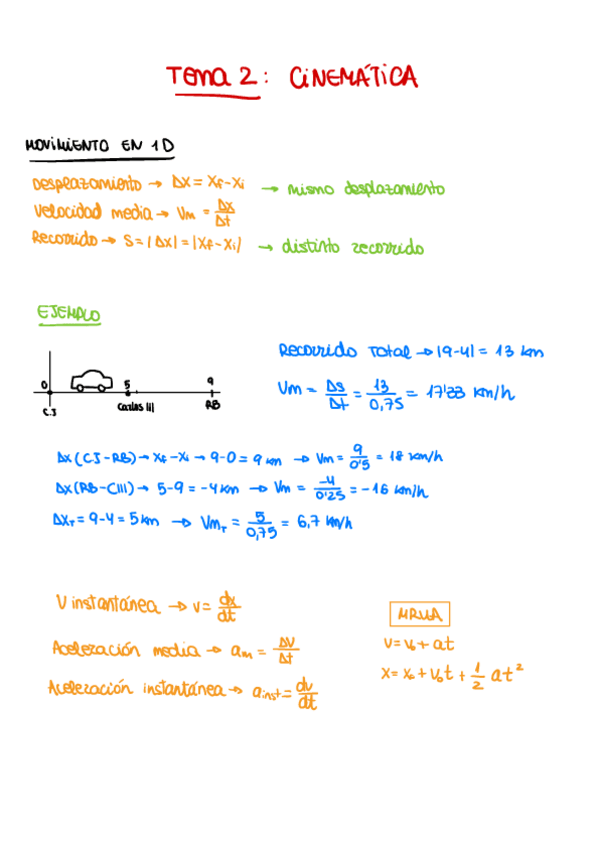 Tema 2: CINEMÁTICA
MOVIMIENTO EN 1D
Desplazamiento → Δx = xf - xi → mismo desplazamiento
Velocidad media → Vm = Δx/Δt
Recorrido → S = |Δx| = |xf - xi| → distinto recorrido
EJEMPLO
Recorrido Total → |9-4| = 13 km
0 5 9
CJ Carlos III RB
Vm = Δs/Δt = 13/0,75 = 17'33 km/h
Δx (CJ-RB) → xf - xi → 9-0 = 9 km → Vm = 9/0'5 = 18 km/h
Δx (RB-CIII) → 5-9 = -4 km → Vm = -4/0'25 = -16 km/h
ΔxT = 9-4 = 5 km → VmT = 5/0,75 = 6,7 km/h
V instantánea → v = dx/dt
Aceleración media → am = ΔV/Δt
Aceleración instantánea → ainst = dv/dt
MRUA
v = v₀ + at
x = x₀ + v₀t + 1/2 at²